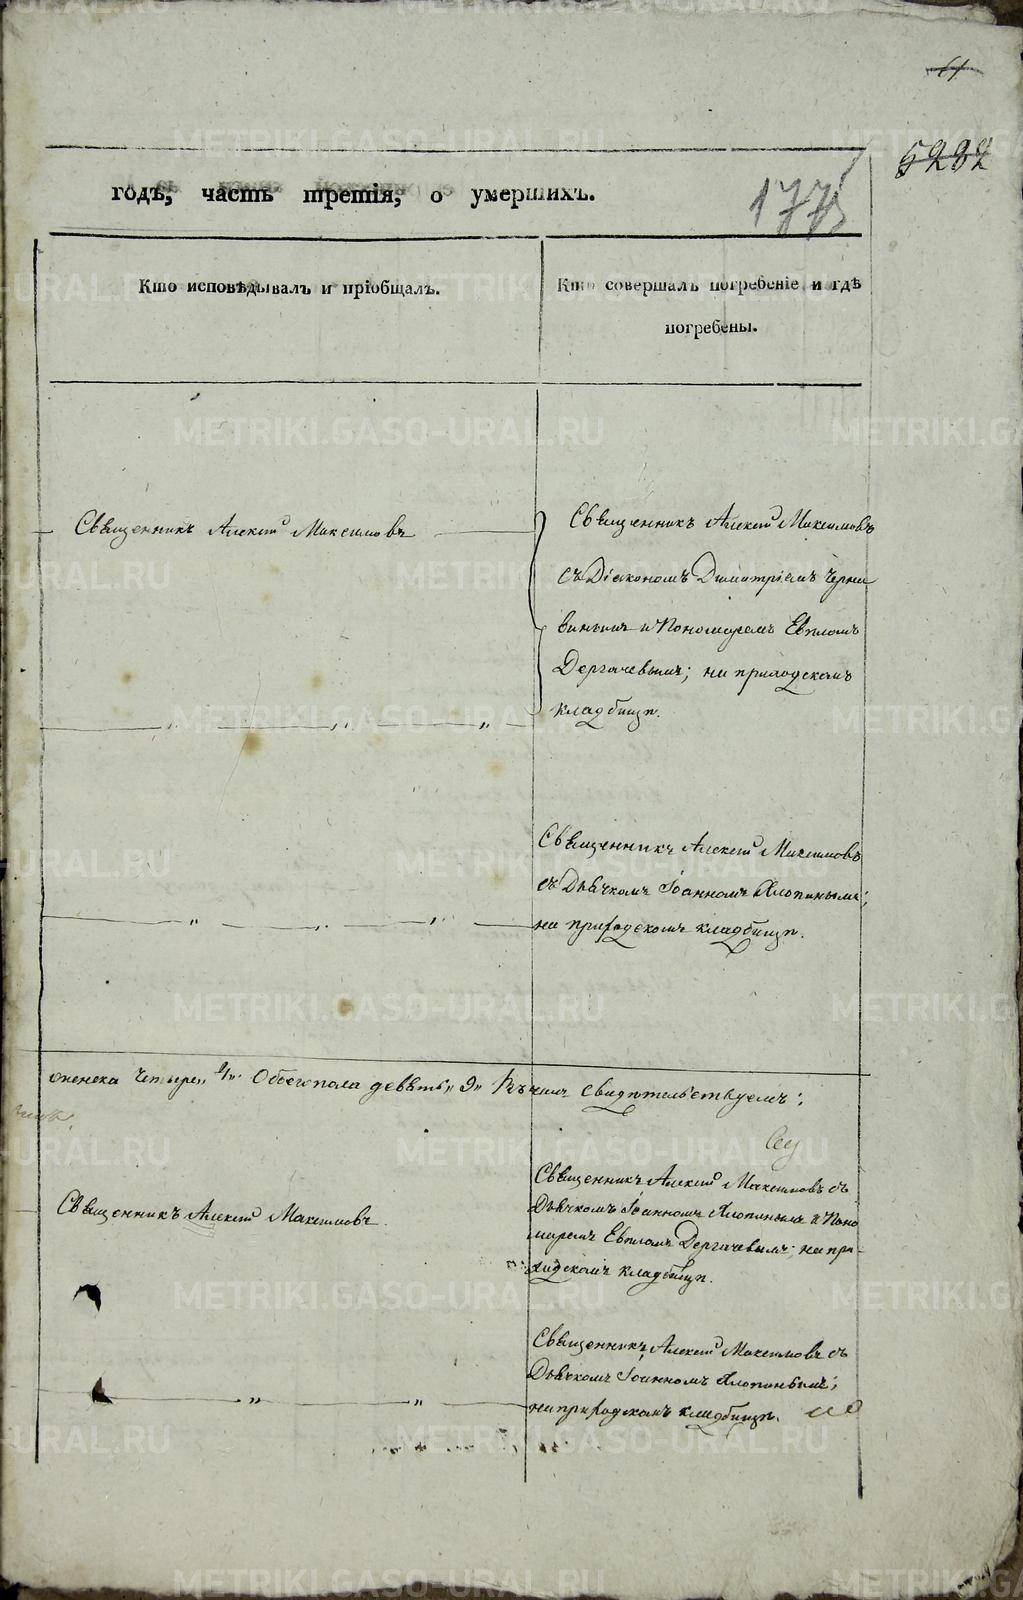 61
5232
годъ, часть третія, о умершихъ.
1773
Кто исповѣдывалъ и пріобщалъ.
Кто совершалъ погребеніе и гдѣ
погребены.
Священникъ Алексій Максимовъ
Священникъ Алексій Максимовъ
съ Діакономъ Димитріемъ Черня
винымъ и Пономаремъ Евпломъ
Дергачевымъ; на приходскомъ
кладбищѣ.
Священникъ Алексій Максимовъ
съ Дьячкомъ Іоанномъ Хлопинымъ;
на приходскомъ кладбищѣ.
женска четыре „4„ Обоего пола девять „9„ въ чемъ свидѣтельствуемъ:
Священникъ Алексій Максимовъ.
Священникъ Алексій Максимовъ съ
Дьячкомъ Іоанномъ Хлопинымъ и Поно
маремъ Евпломъ Дергачевымъ; на при-
ходскомъ кладбищѣ.
Священникъ Алексій Максимовъ съ
Дьячкомъ Іоанномъ Хлопинымъ;
на приходскомъ кладбищѣ.
METRIKI.GASO-URAL.RU